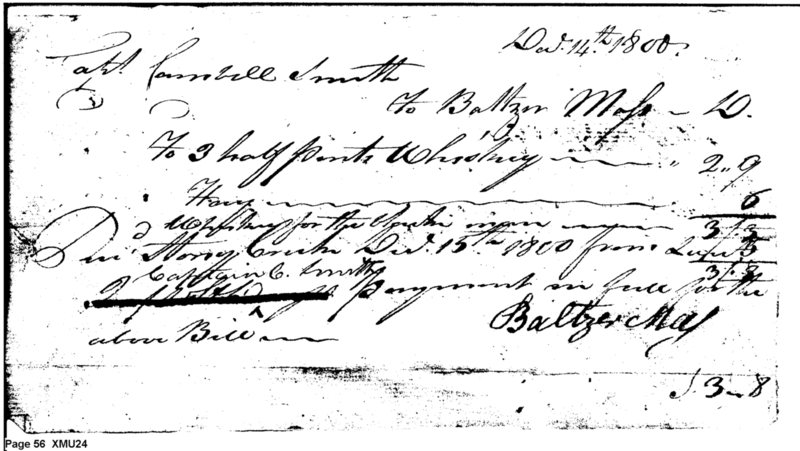 Decr. 14th. 1800.
Capt. Cambell Smith
To Baltzer Moss D.
To 3 half pints Whiskey " 2 " 9
Hay 6
Whiskey for the 3 " 3
Stony Creek Decr. 15th 1800 from 5
Captain C. Smith 3 " 8
payment in full for the
above Bill
Baltzer Moss
3 " 8
Page 56 XMU24